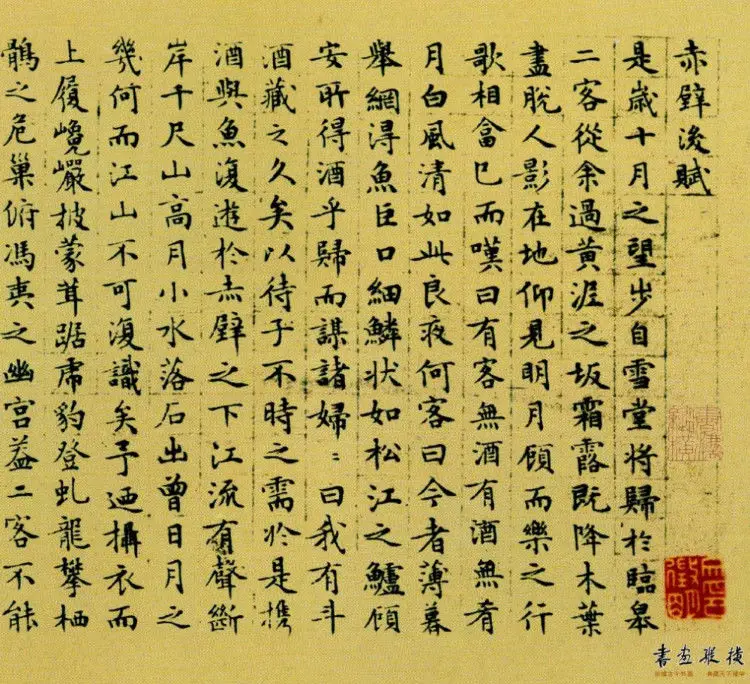 赤壁後賦
是歲十月之望步自雪堂將歸於臨皋
二客從余過黃泥之坂霜露既降木葉
盡脫人影在地仰見明月顧而樂之行
歌相畣已而嘆曰有客無酒有酒無肴
月白風清如此良夜何客曰今者薄暮
舉網得魚巨口細鱗狀如松江之鱸顧
安所得酒乎歸而謀諸婦〻曰我有斗
酒藏之久矣以待子不時之需於是携
酒與魚復遊於赤壁之下江流有聲斷
岸千尺山高月小水落石出曾日月之
幾何而江山不可復識矣予迺攝衣而
上履巉巖披蒙茸踞虎豹登虬龍攀栖
鶻之危巢俯馮夷之幽宮蓋二客不能
書画縱橫